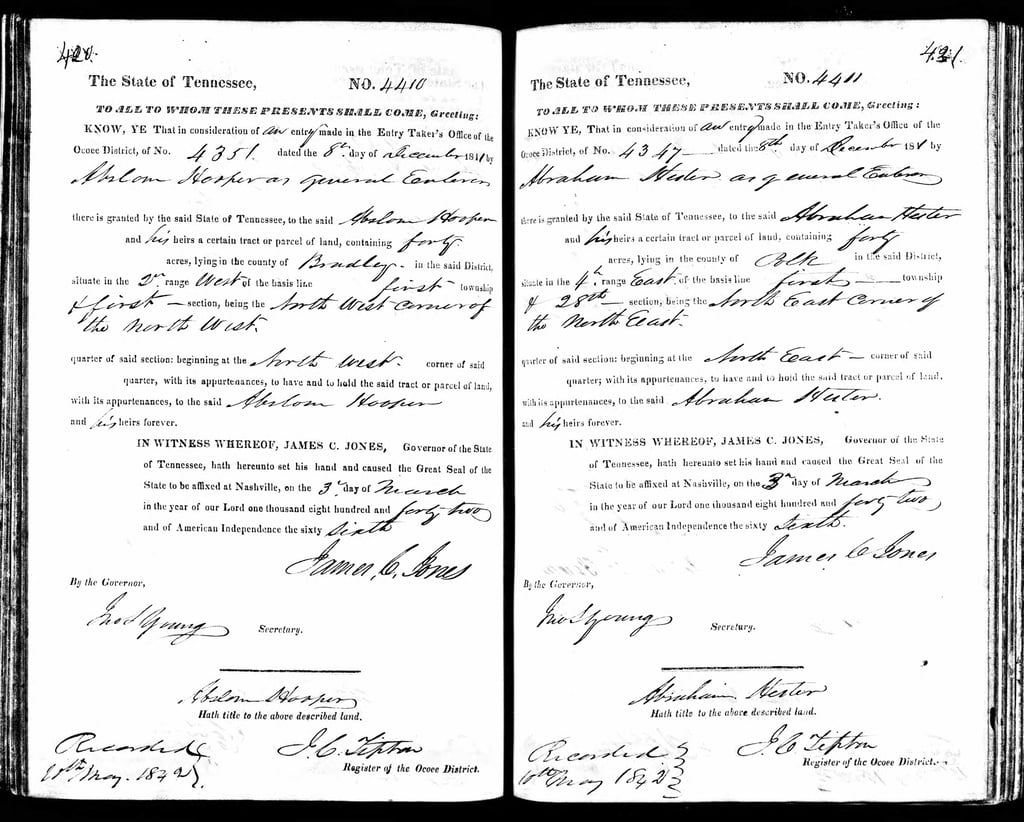 420.
The State of Tennessee, NO. 4410
TO ALL TO WHOM THESE PRESENTS SHALL COME, Greeting:
KNOW, YE That in consideration of an entry made in the Entry Taker's Office of the
Ocoee District, of No. 4351. dated the 8th. day of December 1841 by
Abslom Hooper as general Enterer
there is granted by the said State of Tennessee, to the said Abslom Hooper
and his heirs a certain tract or parcel of land, containing forty
acres, lying in the county of Bradley. in the said District,
situate in the 2nd. range West of the basis line first township
& first — section, being the North West corner of
the North West.
quarter of said section: beginning at the North West. corner of said
quarter, with its appurtenances, to have and to hold the said tract or parcel of land,
with its appurtenances, to the said Abslom Hooper
and his heirs forever.
IN WITNESS WHEREOF, JAMES C. JONES, Governor of the State
of Tennessee, hath hereunto set his hand and caused the Great Seal of the
State to be affixed at Nashville, on the 3rd. day of March
in the year of our Lord one thousand eight hundred and forty two
and of American Independence the sixty sixth
James C. Jones
By the Governor,
Jno S Young Secretary.
Abslom Hooper
Hath title to the above described land.
Recorded J. C. Tipton
10th May. 1842 Register of the Ocoee District.
421.
The State of Tennessee, NO. 4411
TO ALL TO WHOM THESE PRESENTS SHALL COME, Greeting:
KNOW YE, That in consideration of an entry made in the Entry Taker's Office of the
Ocoee District, of No. 4347 — dated the 8th day of December 1841 by
Abraham Hester as general Enterer
there is granted by the said State of Tennessee, to the said Abraham Hester
and his heirs a certain tract or parcel of land, containing forty
acres, lying in the county of Polk in the said District,
situate in the 4th. range East. of the basis line first — township
& 28th — section, being the North East corner of
the North East.
quarter of said section: beginning at the North East — corner of said
quarter; with its appurtenances, to have and to hold the said tract or parcel of land.
with its appurtenances, to the said Abraham Hester.
and his heirs forever.
IN WITNESS WHEREOF, JAMES C. JONES, Governor of the State
of Tennessee, hath hereunto set his hand and caused the Great Seal of the
State to be affixed at Nashville, on the 3rd day of March
in the year of our Lord one thousand eight hundred and forty two,
and of American Independence the sixty sixth.
James C Jones
By the Governor,
Jno S Young Secretary.
Abraham Hester
Hath title to the above described land.
Recorded J. C Tipton
10th May 1842 Register of the Ocoee District.